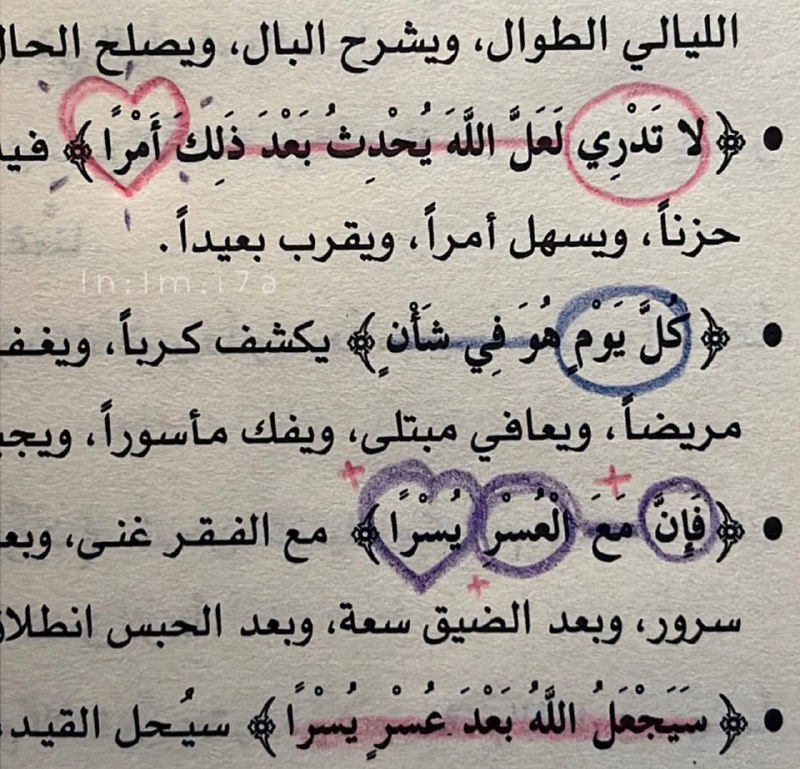 الليالي الطوال، ويشرح البال، ويصلح الحال
• ﴿ لا تَدْرِي لَعَلَّ اللَّهَ يُحْدِثُ بَعْدَ ذَلِكَ أَمْرًا ﴾
حزناً، ويسهل أمراً، ويقرب بعيداً.
ln:lm:i7a
• ﴿ كُلَّ يَوْمٍ هُوَ فِي شَأْنٍ ﴾ يكشف كرباً،
مريضاً، ويعافي مبتلى، ويفك مأسوراً،
• ﴿ فَإِنَّ مَعَ الْعُسْرِ يُسْرًا ﴾ مع الفقر غنى،
سرور، وبعد الضيق سعة، وبعد الحبس
• ﴿ سَيَجْعَلُ اللَّهُ بَعْدَ عُسْرٍ يُسْرًا ﴾ سيُحل القيد